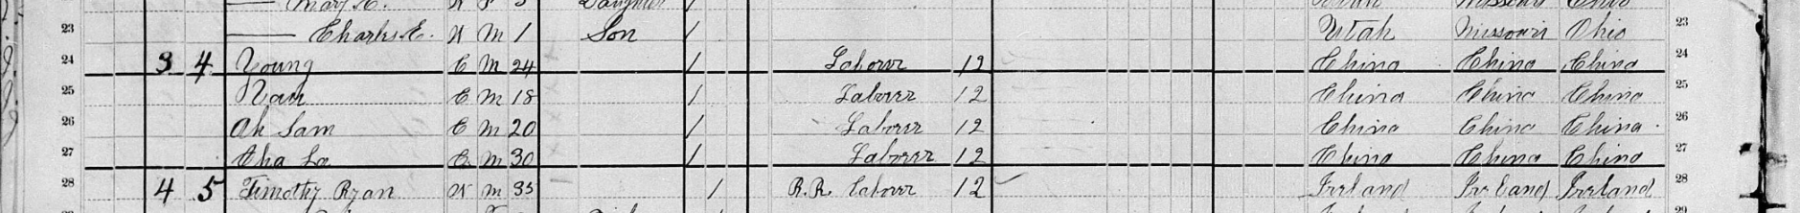 Mary E. W F 3 Daughter / Utah Missouri Ohio
23 —— Charles E. W M 1 Son / Utah Missouri Ohio 23
24 3 4 Young C M 24 / Laborer 12 China China China 24
25 C M 18 / Laborer 12 China China China 25
26 Ah Sam C M 20 / Laborer 12 China China China 26
27 Cha La C M 30 / Laborer 12 China China China 27
28 4 5 Timothy Ryan W M 35 / R.R. Laborer 12 Ireland Ireland Ireland 28
29